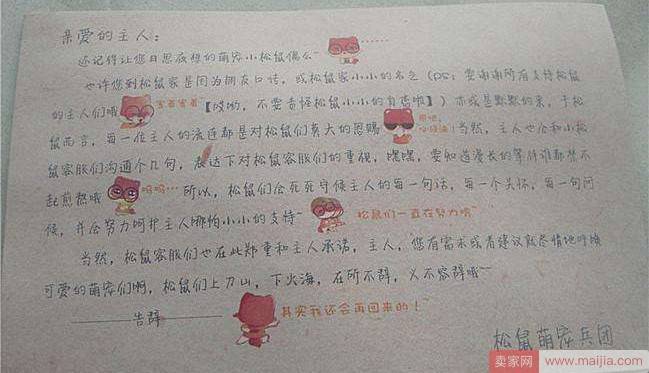 亲爱的主人：
还记得让您日思夜想的萌宠小松鼠僞么~
也许您到松鼠家是因为朋友口话，或松鼠家小小的名气（PS：要谢谢所有支持松鼠
的主人们哦 害羞害羞【哎哟，不要责怪松鼠小小的自恋啦】）亦或是默默的来，于松
鼠而言，每一位主人的流连都是对松鼠们莫大的恩赐 当然，主人也会和小松
鼠客服们沟通个几句，表达下对松鼠客服们的重视，嘿嘿，要知道漫长的等待谁都禁不
起煎熬哦 呜呜… 所以，松鼠们会死死守候主人的每一句话，每一个关怀，每一句问
候，并会努力呵护主人哪怕小小的支持~ 松鼠们一直在努力哦~
当然，松鼠客服们也在此郑重和主人承诺，主人，您有需求或者建议就尽情地呼唤
可爱的萌宠们啊，松鼠们上刀山，下火海，在所不辞，义不容辞哦~
——告辞—— 其实我还会再回来的！~
松鼠萌宠兵团
卖家网 www.maijia.com